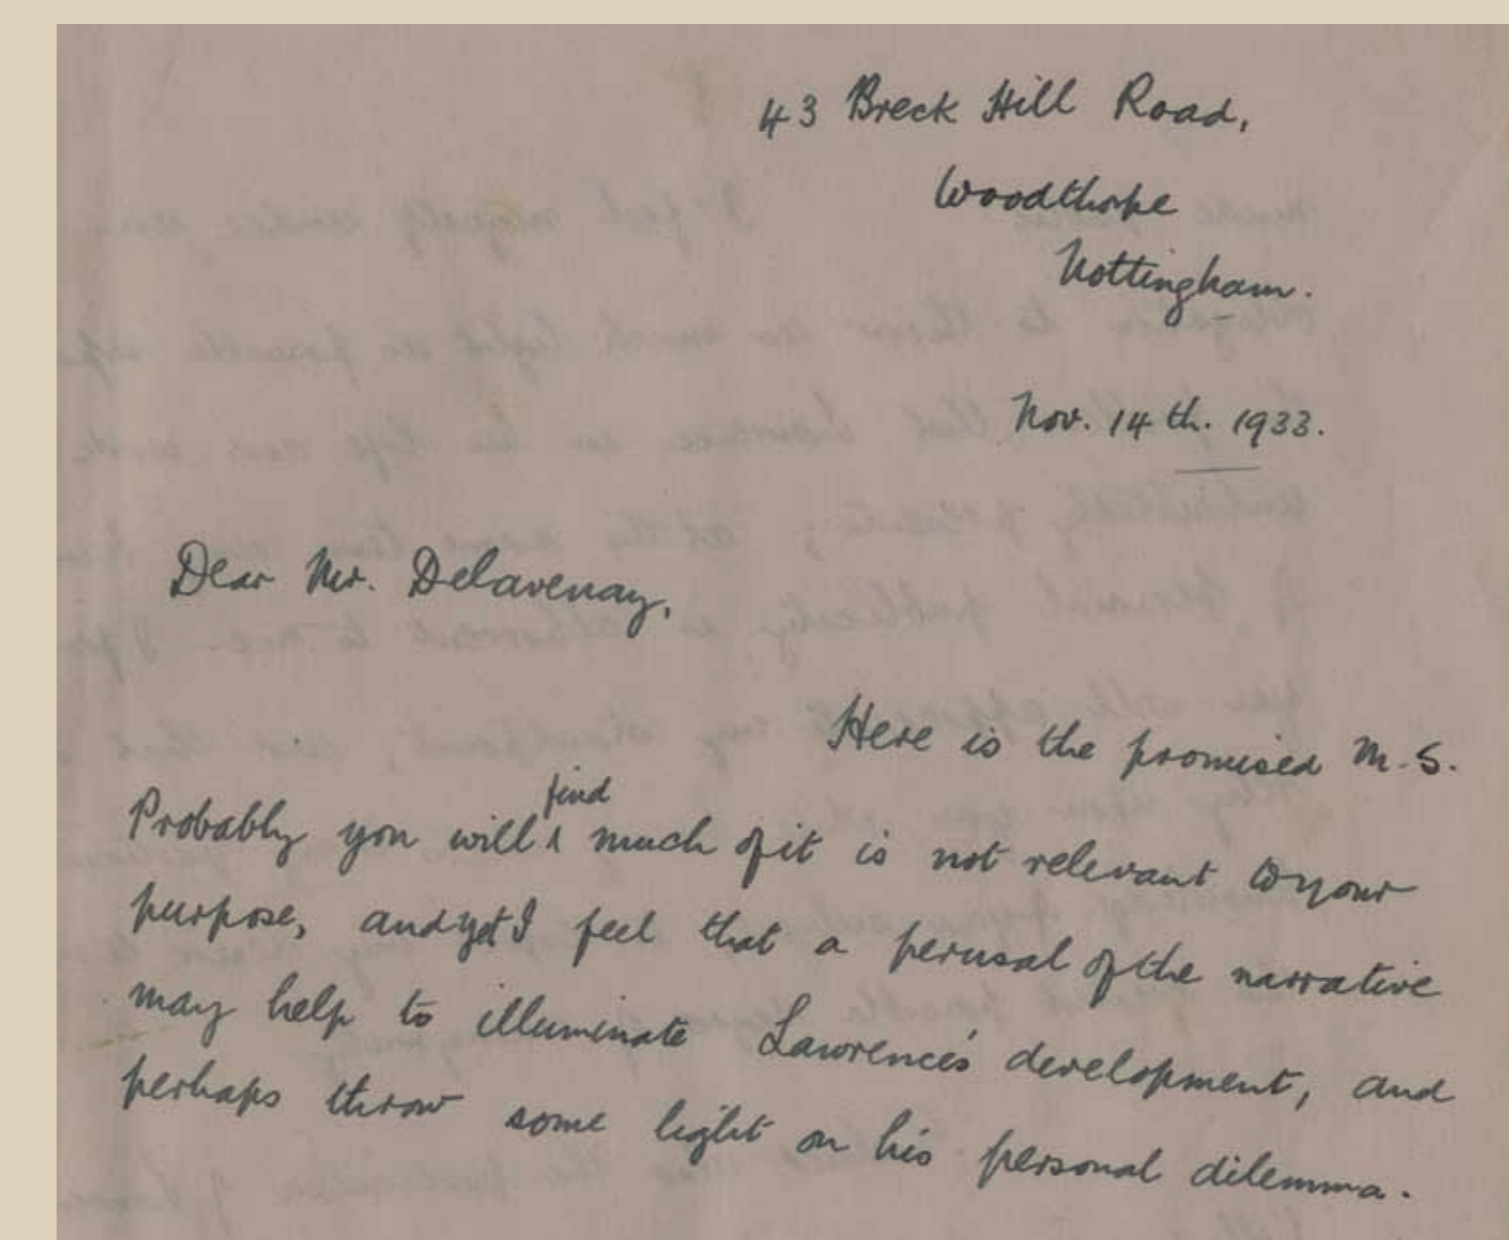 43 Breck Hill Road,
Woodthorpe
Nottingham.
Nov. 14th. 1933.
Dear Mr. Delavenay,
Here is the promised M.S.
find
Probably you will ‸ much of it is not relevant to your
purpose, and yet I feel that a perusal of the narrative
may help to illuminate Lawrence's development, and
perhaps throw some light on his personal dilemma.